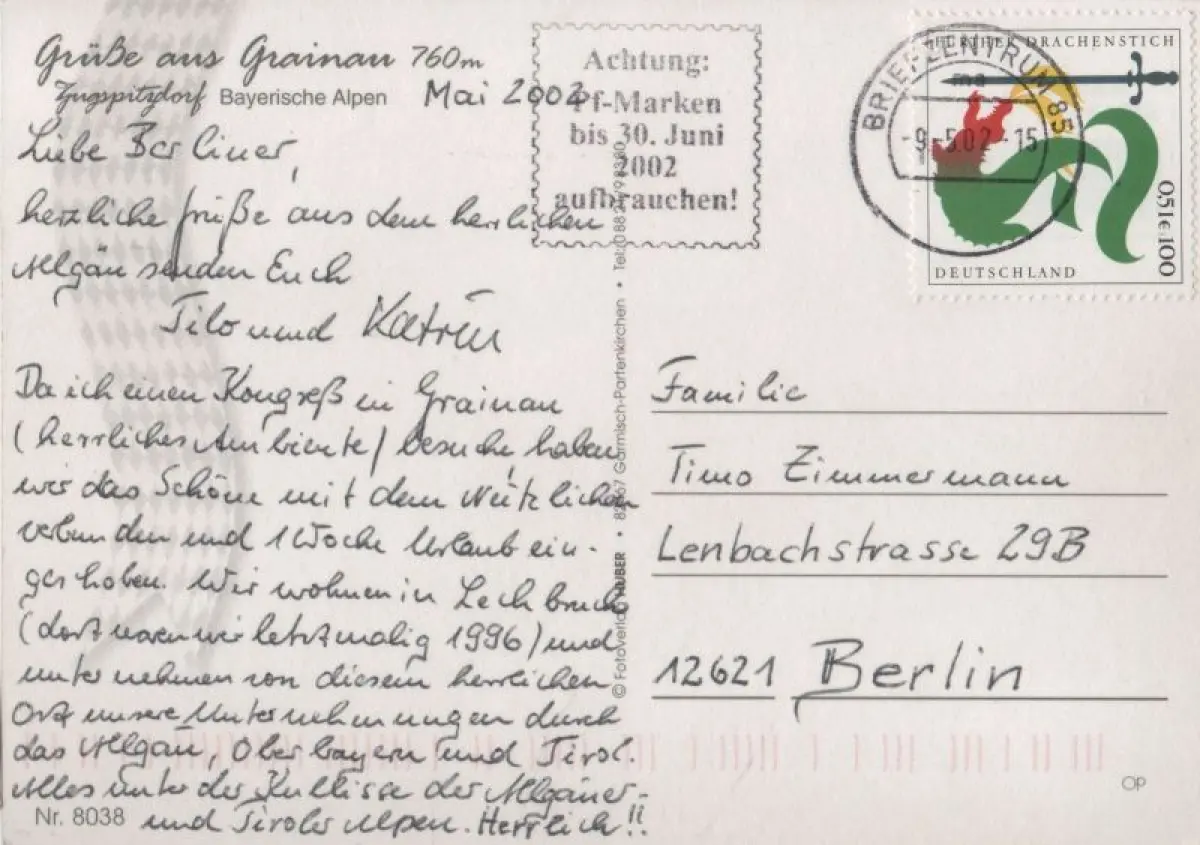 Grüße aus Grainau 760m
Zugspitzdorf Bayerische Alpen Mai 2002
Liebe Berliner,
herzliche Grüße aus dem herrlichen
Allgäu senden Euch
Tilo und Katrin
Da ich einen Kongreß in Grainau
(herrliches Ambiente) besuche, haben
wir das Schöne mit dem Nützlichen
verbunden und 1 Woche Urlaub ein-
geschoben. Wir wohnen in Lechbruck
(dort waren wir letztmalig 1996) und
unternehmen von diesem herrlichen
Ort unsere Unternehmungen durch
das Allgäu, Oberbayern und Tirol.
Alles unter der Kulisse der Allgäuer-
und Tiroler Alpen. Herrlich!!
Nr. 8038
Achtung:
Pf-Marken
bis 30. Juni
2002
aufbrauchen!
© Fotoverlag HUBER • Garmisch-Partenkirchen • Tel.
BRIEFZENTRUM 85
-9.-5.02-15
FÜRTHER DRACHENSTICH
0,51€ 100
DEUTSCHLAND
Familie
Timo Zimmermann
Lenbachstrasse 29B
12621 Berlin
OP